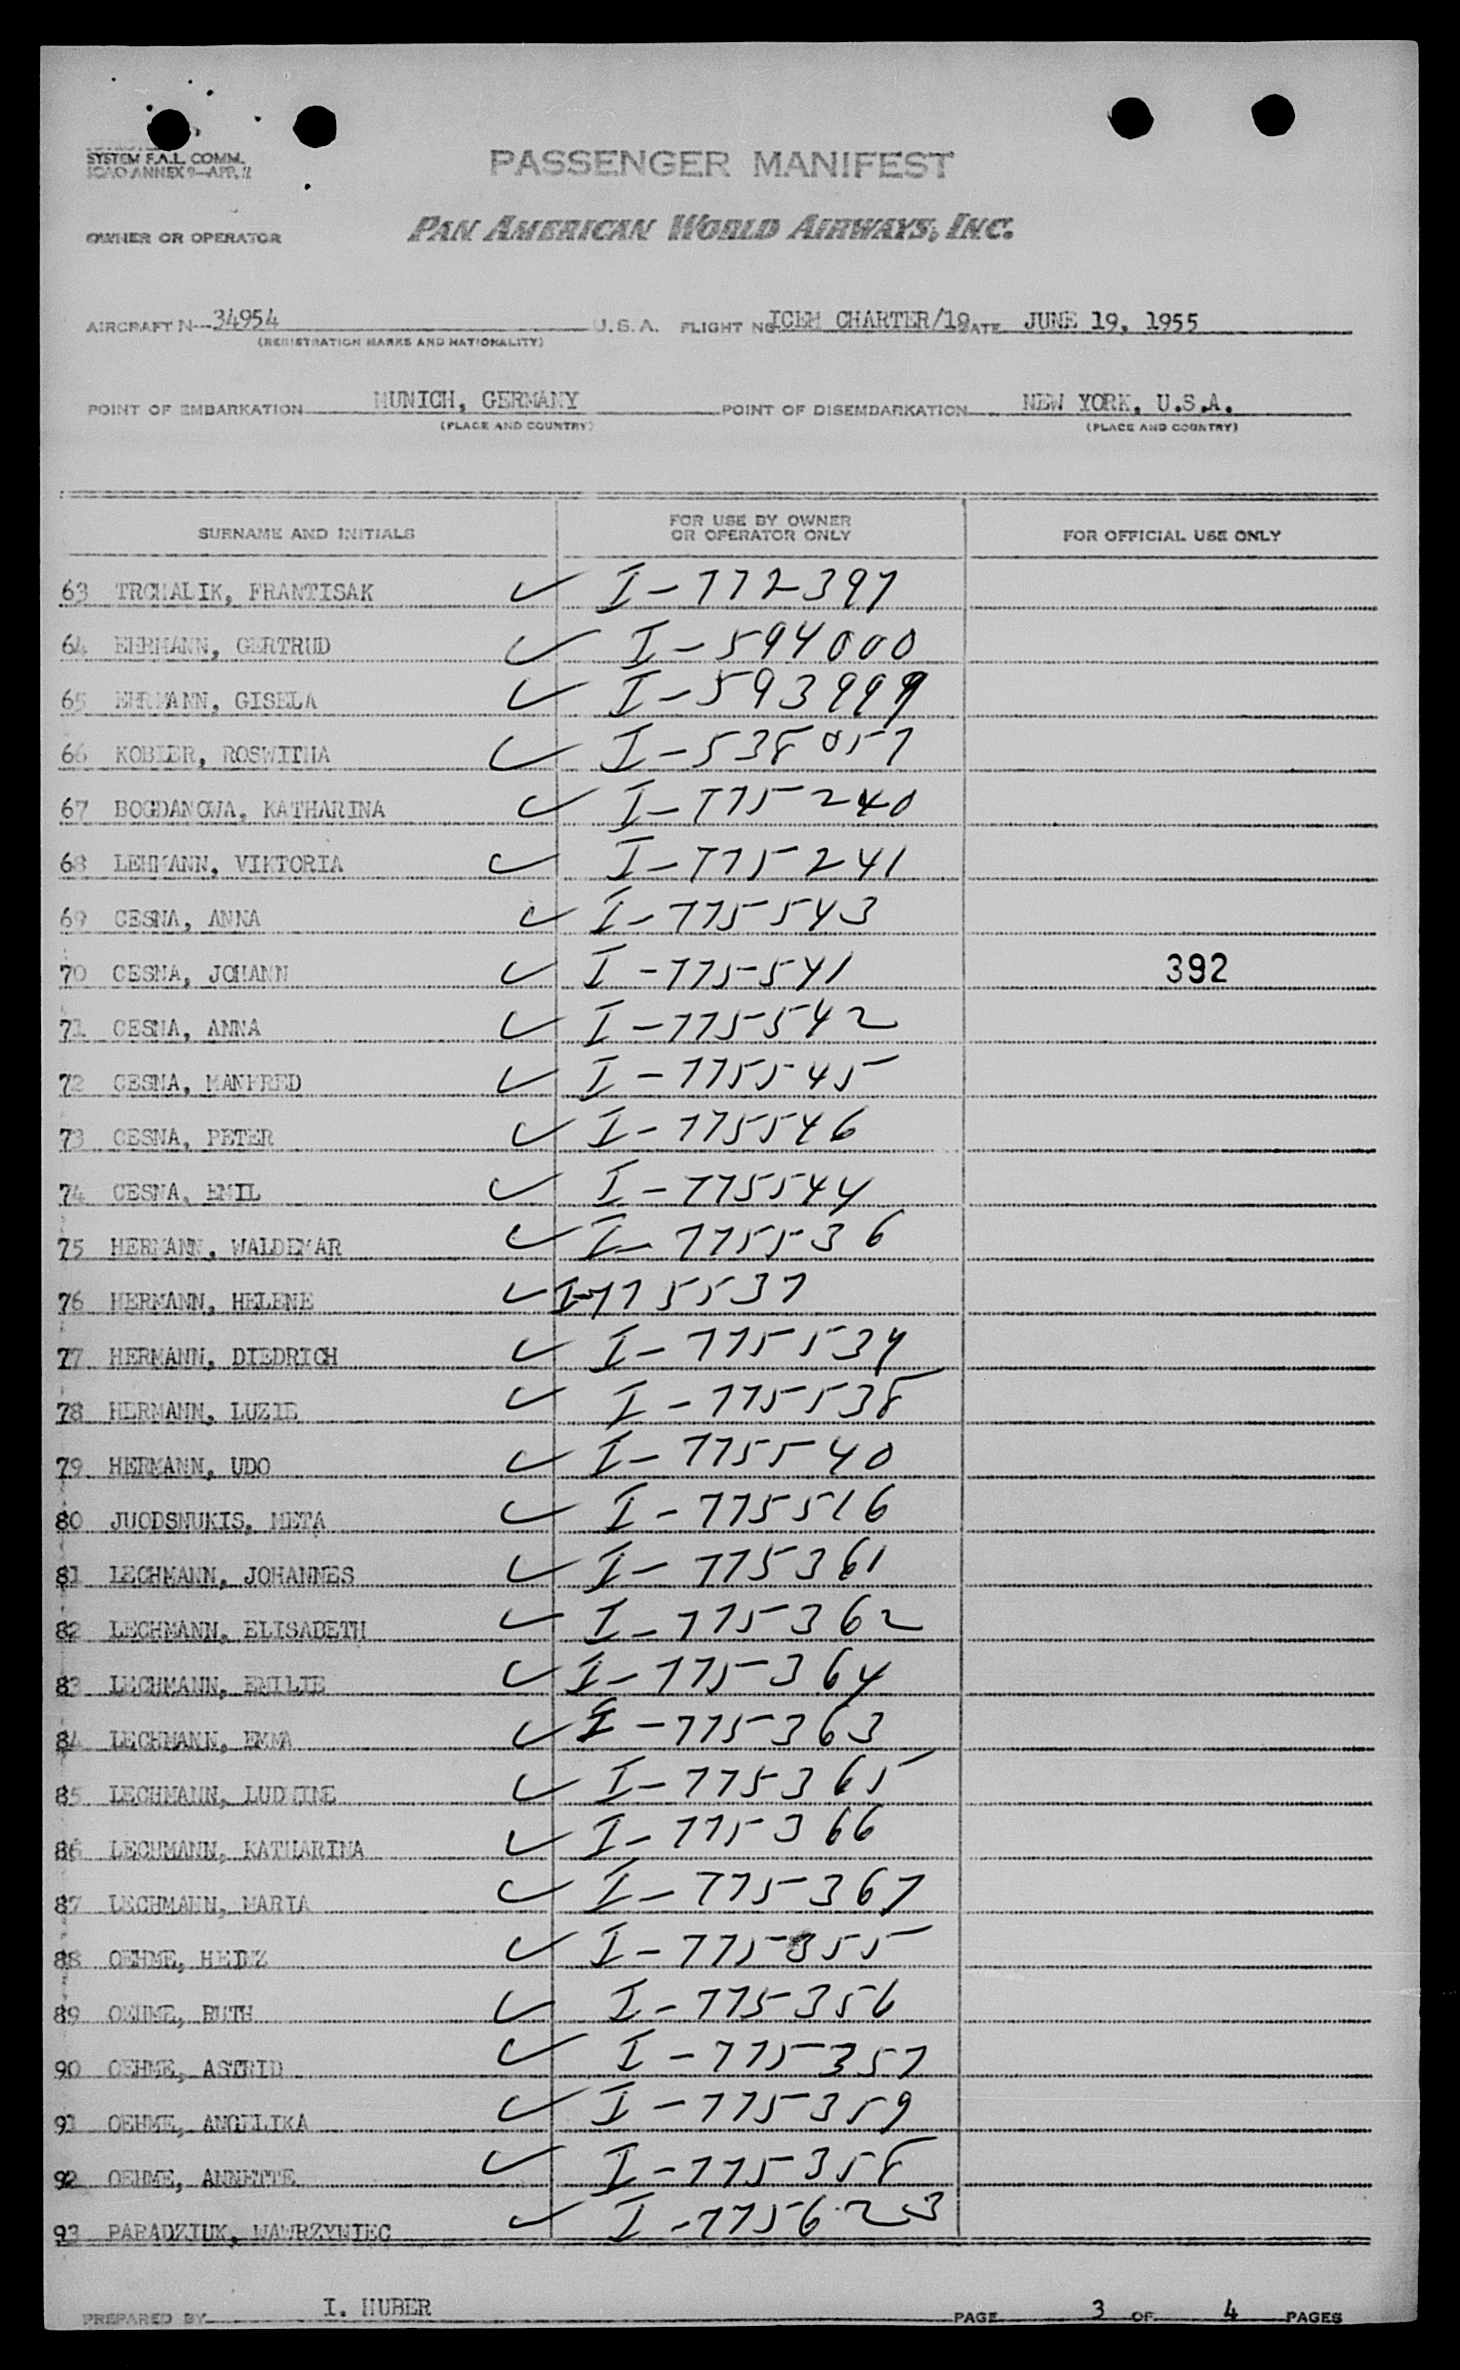 SYSTEM F.A.L. COMM.
ICAO ANNEX 9—APP. 2
PASSENGER MANIFEST
OWNER OR OPERATOR PAN AMERICAN WORLD AIRWAYS, INC.
AIRCRAFT N— 34954 U.S.A. FLIGHT NO ICEM CHARTER/19 DATE JUNE 19, 1955
(REGISTRATION MARKS AND NATIONALITY)
POINT OF EMBARKATION MUNICH, GERMANY POINT OF DISEMBARKATION NEW YORK, U.S.A.
(PLACE AND COUNTRY) (PLACE AND COUNTRY)
SURNAME AND INITIALS FOR USE BY OWNER OR OPERATOR ONLY FOR OFFICIAL USE ONLY
63 TRCHALIK, FRANTISAK ✓ I-772397
64 EHRMANN, GERTRUD ✓ I-594000
65 EHRMANN, GISELA ✓ I-593999
66 KOBLER, ROSWITHA ✓ I-538057
67 BOGDANOWA, KATHARINA ✓ I-775240
68 LEHMANN, VIKTORIA ✓ I-775241
69 CESNA, ANNA ✓ I-775543
70 CESNA, JOHANN ✓ I-775541 392
71 CESNA, ANNA ✓ I-775542
72 CESNA, MANFRED ✓ I-775545
73 CESNA, PETER ✓ I-775546
74 CESNA, EMIL ✓ I-775544
75 HERMANN, WALDEMAR ✓ I-775536
76 HERMANN, HELENE ✓ I-775537
77 HERMANN, DIEDRICH ✓ I-775534
78 HERMANN, LUZIE ✓ I-775538
79 HERMANN, UDO ✓ I-775540
80 JUODSNUKIS, META ✓ I-775516
81 LECHMANN, JOHANNES ✓ I-775361
82 LECHMANN, ELISABETH ✓ I-775362
83 LECHMANN, EMILIE ✓ I-775364
84 LECHMANN, EMMA ✓ I-775363
85 LECHMANN, ✓ I-775365
86 LECHMANN, KATHARINA ✓ I-775366
87 LECHMANN, MARIA ✓ I-775367
88 OEHME, HEINZ ✓ I-775355
89 OEHME, RUTH ✓ I-775356
90 OEHME, ASTRID ✓ I-775357
91 OEHME, ANGELIKA ✓ I-775359
92 OEHME, ANNETTE ✓ I-775358
93 PARADZIUK, WAWRZYNIEC ✓ I-775623
PREPARED BY I. HUBER PAGE 3 OF 4 PAGES